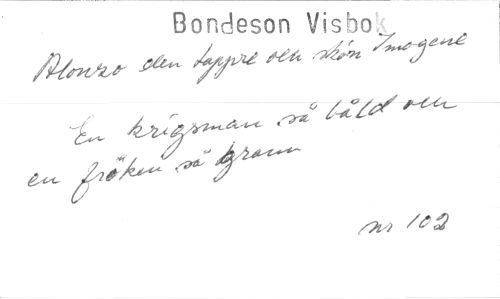 Bondeson Visbok
Alonzo den tappre och skön Imogene
En krigsman så båld och
en fröken så grann
nr 102